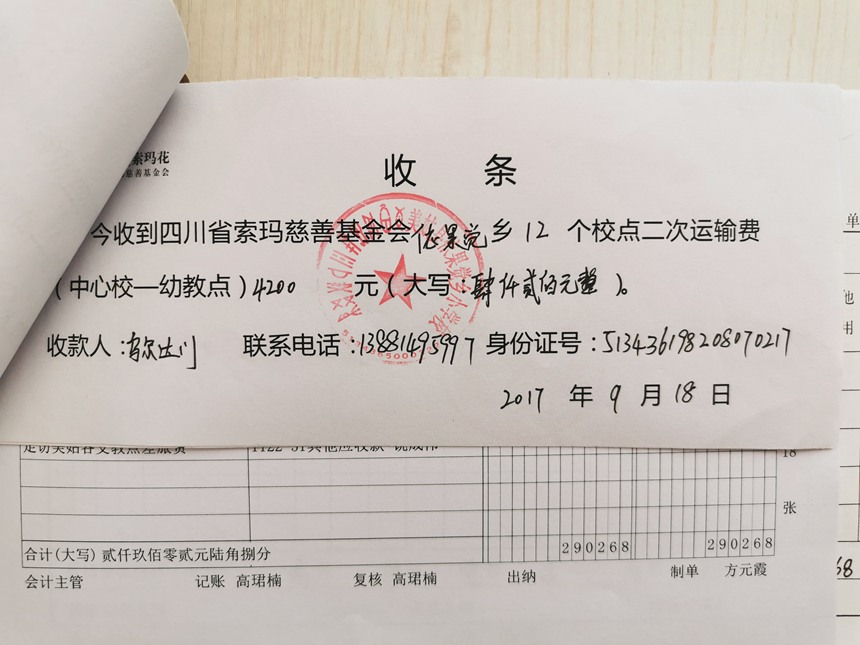 索玛花
慈善基金会
收 条
今收到四川省索玛慈善基金会依果觉乡12个校点二次运输费
(中心校—幼教点)4200 元(大写:肆仟贰佰元整)。
收款人: 联系电话:13881495997 身份证号:513436198208070217
2017 年 9 月 18 日
单
他
用
18
张
290268 290268
合计(大写) 贰仟玖佰零贰元陆角捌分
会计主管 记账 高珺楠 复核 高珺楠 出纳 制单 方元霞
68